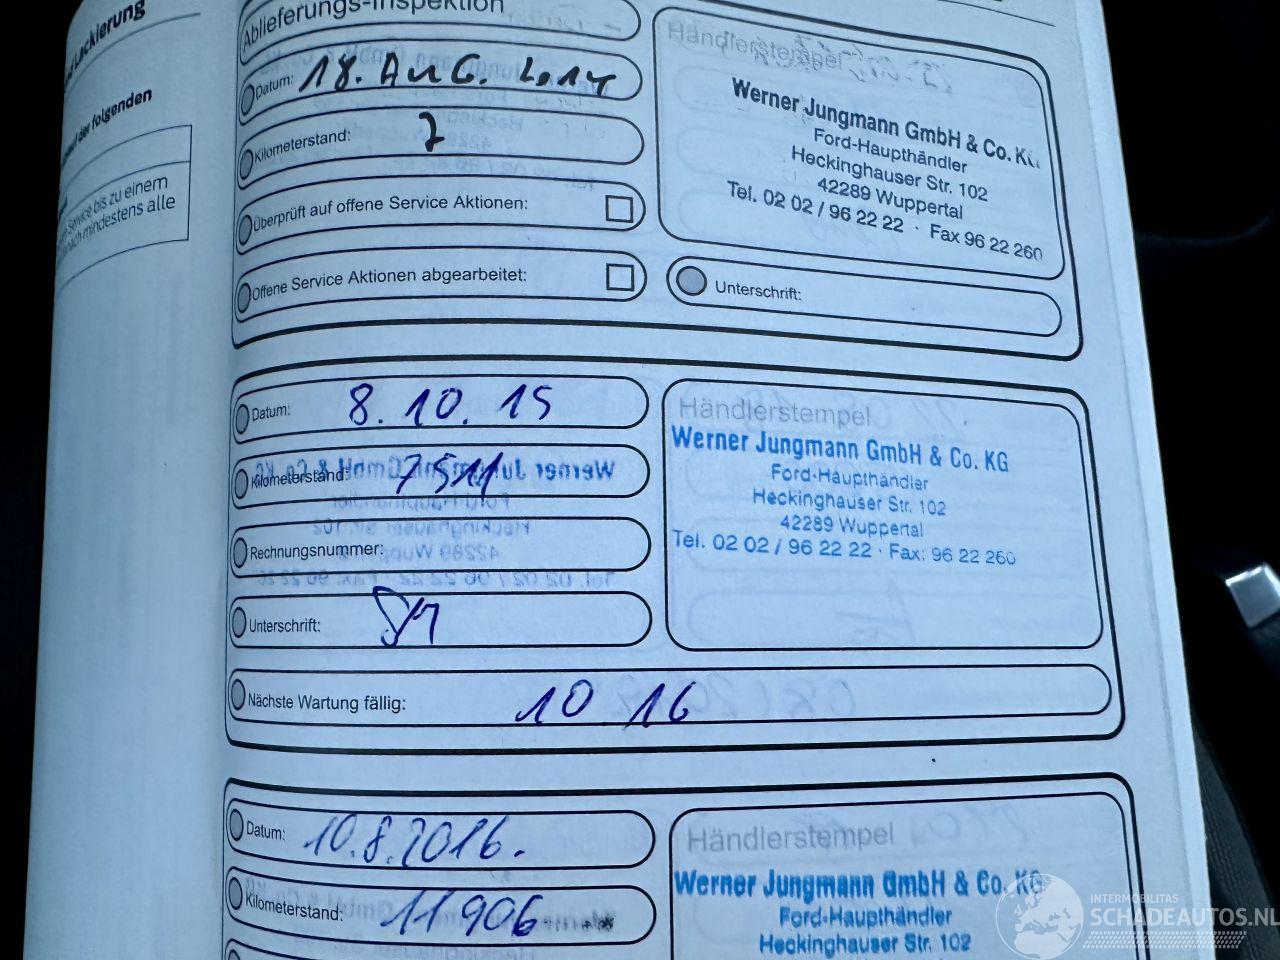 nd Lackierung
der folgenden
Service bis zu einem
nach mindestens alle
Ablieferungs-Inspektion
Datum: 18. AUG. 2014
Kilometerstand: 7
Überprüft auf offene Service Aktionen:
Offene Service Aktionen abgearbeitet:
Händlerstempel
Werner Jungmann GmbH & Co. KG
Ford-Haupthändler
Heckinghauser Str. 102
42289 Wuppertal
Tel. 02 02 / 96 22 22 · Fax 96 22 260
Unterschrift:
Datum: 8. 10. 15
Kilometerstand: 7511
Rechnungsnummer:
Unterschrift:
Händlerstempel
Werner Jungmann GmbH & Co. KG
Ford-Haupthändler
Heckinghauser Str. 102
42289 Wuppertal
Tel. 02 02 / 96 22 22 · Fax: 96 22 260
Nächste Wartung fällig: 10 16
Datum: 10.8.2016.
Kilometerstand: 11906
Händlerstempel
Werner Jungmann GmbH & Co. KG
Ford-Haupthändler
Heckinghauser Str. 102
INTERMOBILITAS
SCHADEAUTOS.NL